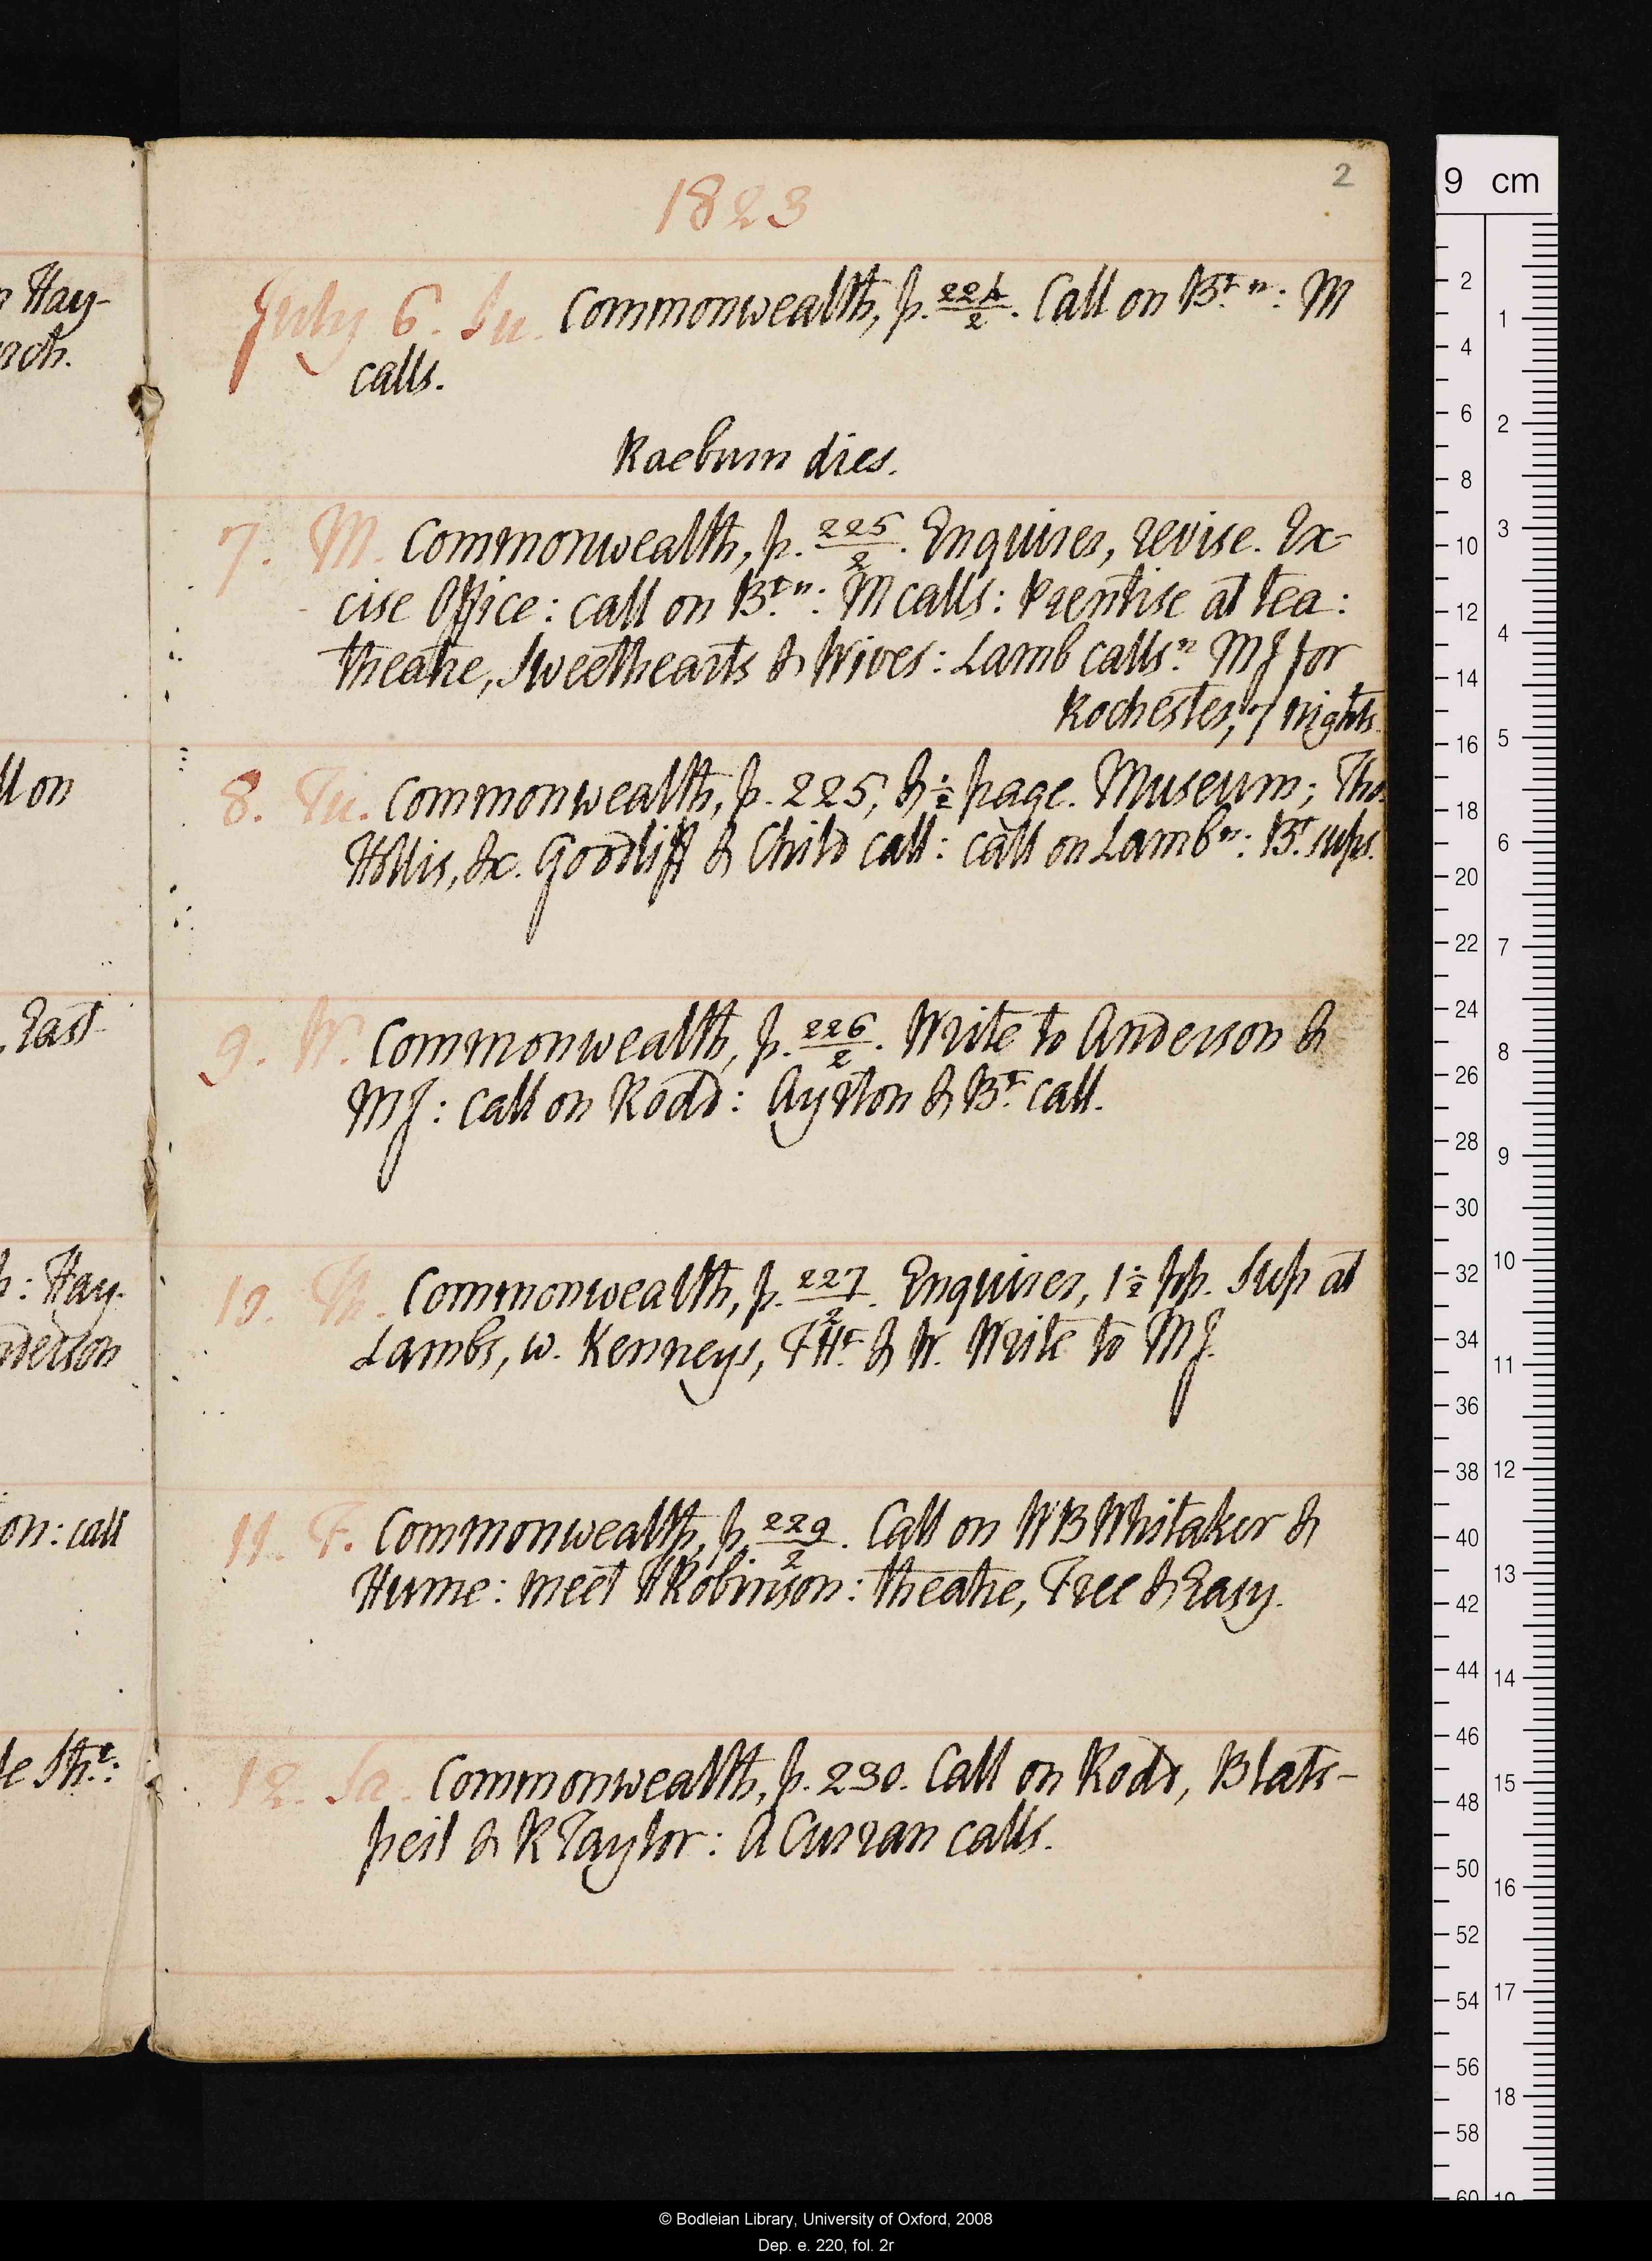 2
1823
July 6. Su. Commonwealth, p. 224/2. Call on Bt n: M
calls.
Raeburn dies.
7. M. Commonwealth, p. 225/2. Enquirer, revise. Ex-
cise Office: call on Bt n: M calls: Prentise at tea:
theatre, Sweethearts & Wives: Lamb calls n MJ for
Rochester, 7 nights.
8. Tu. Commonwealth, p. 225, & ½ page. Museum; Tho.
Hollis, &c. Goodliff & Child call: call on Lamb n: Bt sups.
9. W. Commonwealth, p. 226/2. Write to Anderson &
MJ: call on Rodd: Ayrton & Bt call.
10. Th. Commonwealth, p. 227/2. Enquirer, 1½ pp. Sup at
Lambs, w. Kenneys, THt & W. Write to MJ.
11. F. Commonwealth, p. 229/2. Call on WBWhitaker &
Hume: meet HRobinson: theatre, Free & Easy.
12. Sa. Commonwealth, p. 230. Call on Rodd, Blats-
peil & RTaylor: A Curran calls.
n Hay-
rch.
ll on
East-
: Hay-
nderson
on: call
le Sh.e:
9 cm
2
4
6
8
10
12
14
16
18
20
22
24
26
28
30
32
34
36
38
40
42
44
46
48
50
52
54
56
58
60
1
2
3
4
5
6
7
8
9
10
11
12
13
14
15
16
17
18
19
© Bodleian Library, University of Oxford, 2008
Dep. e. 220, fol. 2r